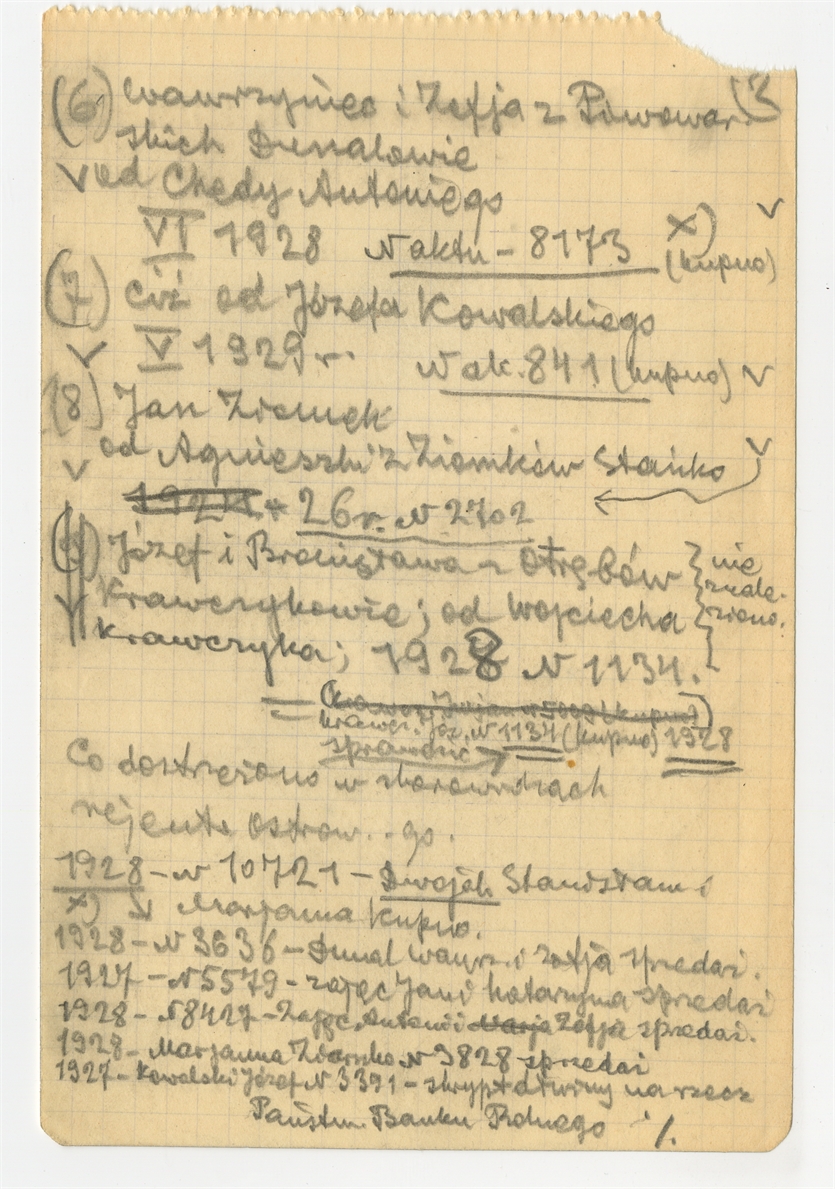 (3
(6) Wawrzyniec i Zofja z Piwowar-
skich Dunalowie
v od Chędy Antoniego
VI 1928 N aktu - 8173 x) (kupno) v
(7) ciż od Józefa Kowalskiego
v V 1929 r. N ak. 841 (kupno) v
(8) Jan Ziomek
v od Agnieszki z Ziomków Stańko v
26 r. N 2702
Józef i Bronisława z Otrębów } nie
Krawczykowie; od Wojciecha } znale-
Krawczyka; 1928 N 1134. } ziono.
Krawcz. Józ. N 1134 (kupno) 1928
sprawdzić
Co dostrzeżono w skorowidzach
rejenta Ostrow...go.
1928 - N 10721 - Dwojak Stanisław i
x) Marjanna kupno.
1928 - N 3636 - Dunal Wawrz. i Zofja sprzedaż.
1927 - N 5579 - Zając Jan i Katarzyna sprzedaż
1928 - N 8427 - Zając Antoni i Marja Zofja sprzedaż.
1928 - Marjanna Ziarnko N 3828 sprzedaż
1927 - Kowalski Józef N 3391 - skrypt dłużny na rzecz
Państw. Banku Rolnego ./.